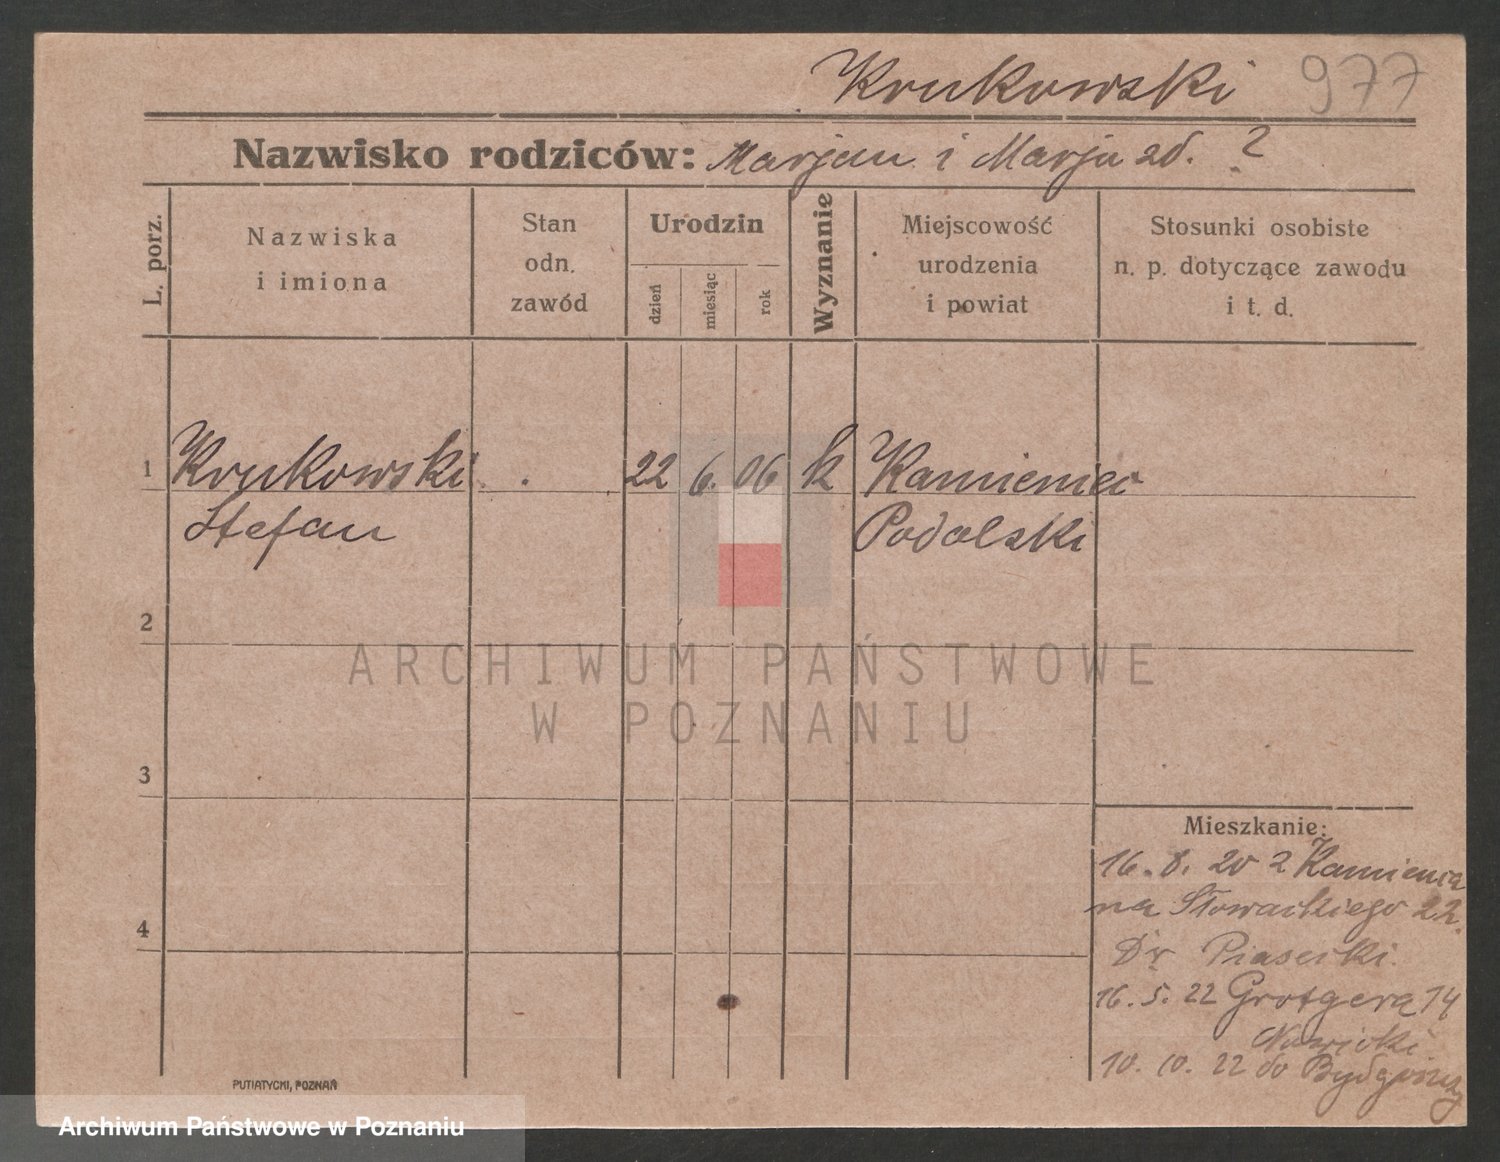 Krukowski 977
Nazwisko rodziców: Marjan i Marja zd. ?
L. porz.
Nazwiska
i imiona
Stan
odn.
zawód
Urodzin
dzień
miesiąc
rok
Wyznanie
Miejscowość
urodzenia
i powiat
Stosunki osobiste
n. p. dotyczące zawodu
i t. d.
1 Krukowski . 22 6. 06 k Kamieniec
Stefan Podolski
2
3
4
Mieszkanie:
16. 8. 20 z Kamienia
na Słowackiego 22.
Dr Piasecki.
16. 5. 22 Grotgera 14
Nowicki.
10. 10. 22 do Bydgoszczy
PUTIATYCKI, POZNAŃ
ARCHIWUM PAŃSTWOWE
W POZNANIU
Archiwum Państwowe w Poznaniu